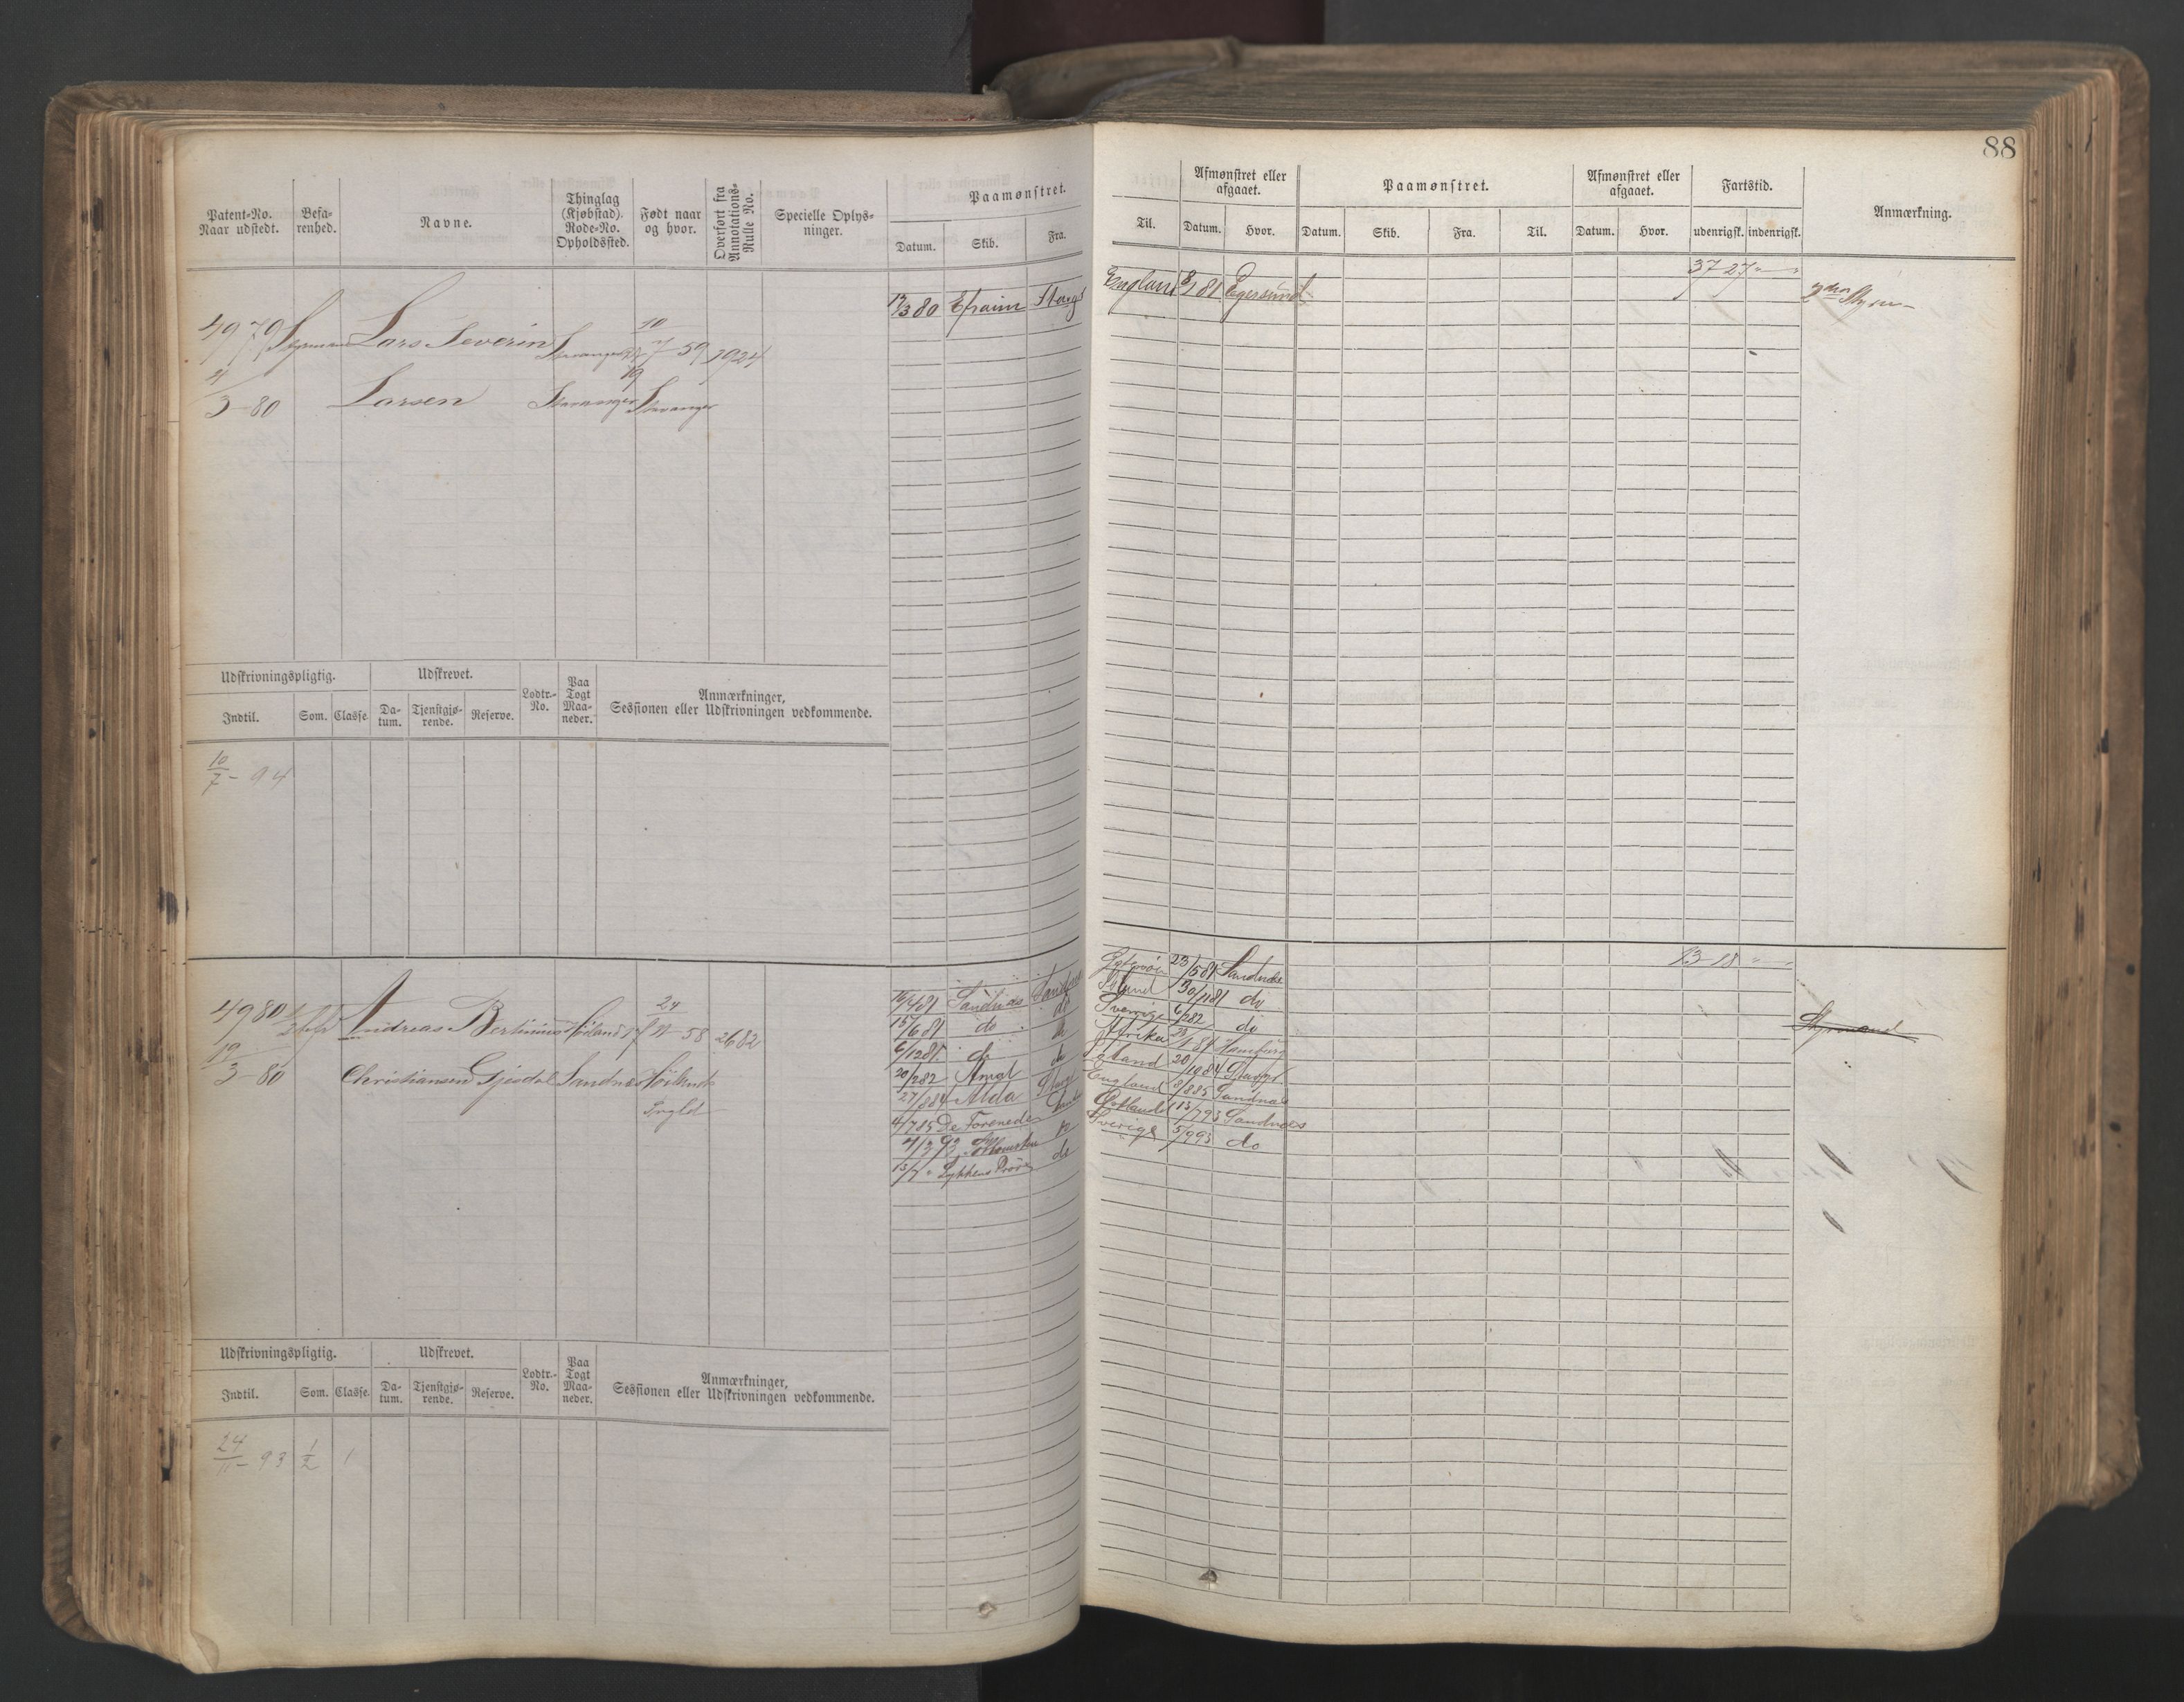 88
Patent-No. Naar udstedt.
Befarenhed.
Navne.
Thinglag (Kjøbstad). Rode-No. Opholdssted.
Født naar og hvor.
Overført fra Annotations-Rulle No.
Specielle Oplysninger.
Paamønstret.
Datum. Skib. Fra. Til.
Afmønstret eller afgaaet.
Datum. Hvor.
Paamønstret.
Datum. Skib. Fra. Til.
Afmønstret eller afgaaet.
Datum. Hvor.
Fartstid.
udenrigsk. indenrigsk.
Anmærkning.
4979 Lars Severin Stavanger 10/7-59 1924
4/3-80 Larsen Stavanger Stavanger
80 Efraim Stavgr England 81 Egersund
37 27
Udskrivningspligtig. Udskrevet. Lodtr.-No. Paa Togt Maaneder. Anmærkninger, Sessionen eller Udskrivningen vedkommende.
Indtil. Som. Classe. Datum. Tjenstgjørende. Reserve.
10/7-94
4980 Andreas Bertinius Høiland 24/11-58 2682
3-80 Christiansen Gjesdal Sandnæs Høiland
81 Sandnæs 23/5 81 Sandnæs
15/6 81 do do Island 30/11 81 do
6/12 81 do do Sverrige 6/2 82 do
20/2 82 do Afrika 84 Hamburg
27/8 84 Alda Stavgr 20/10 84 Stavgr
4/7 85 De Forenede England 8/8 85 Sandnæs
93 13/7 93 Sandnæs
13/7 " Lykkens Prøve do Sverige 5/9 93 do
13 18
Styrmand
Udskrivningspligtig. Udskrevet. Lodtr.-No. Paa Togt Maaneder. Anmærkninger, Sessionen eller Udskrivningen vedkommende.
Indtil. Som. Classe. Datum. Tjenstgjørende. Reserve.
24/11-93 1/2 1